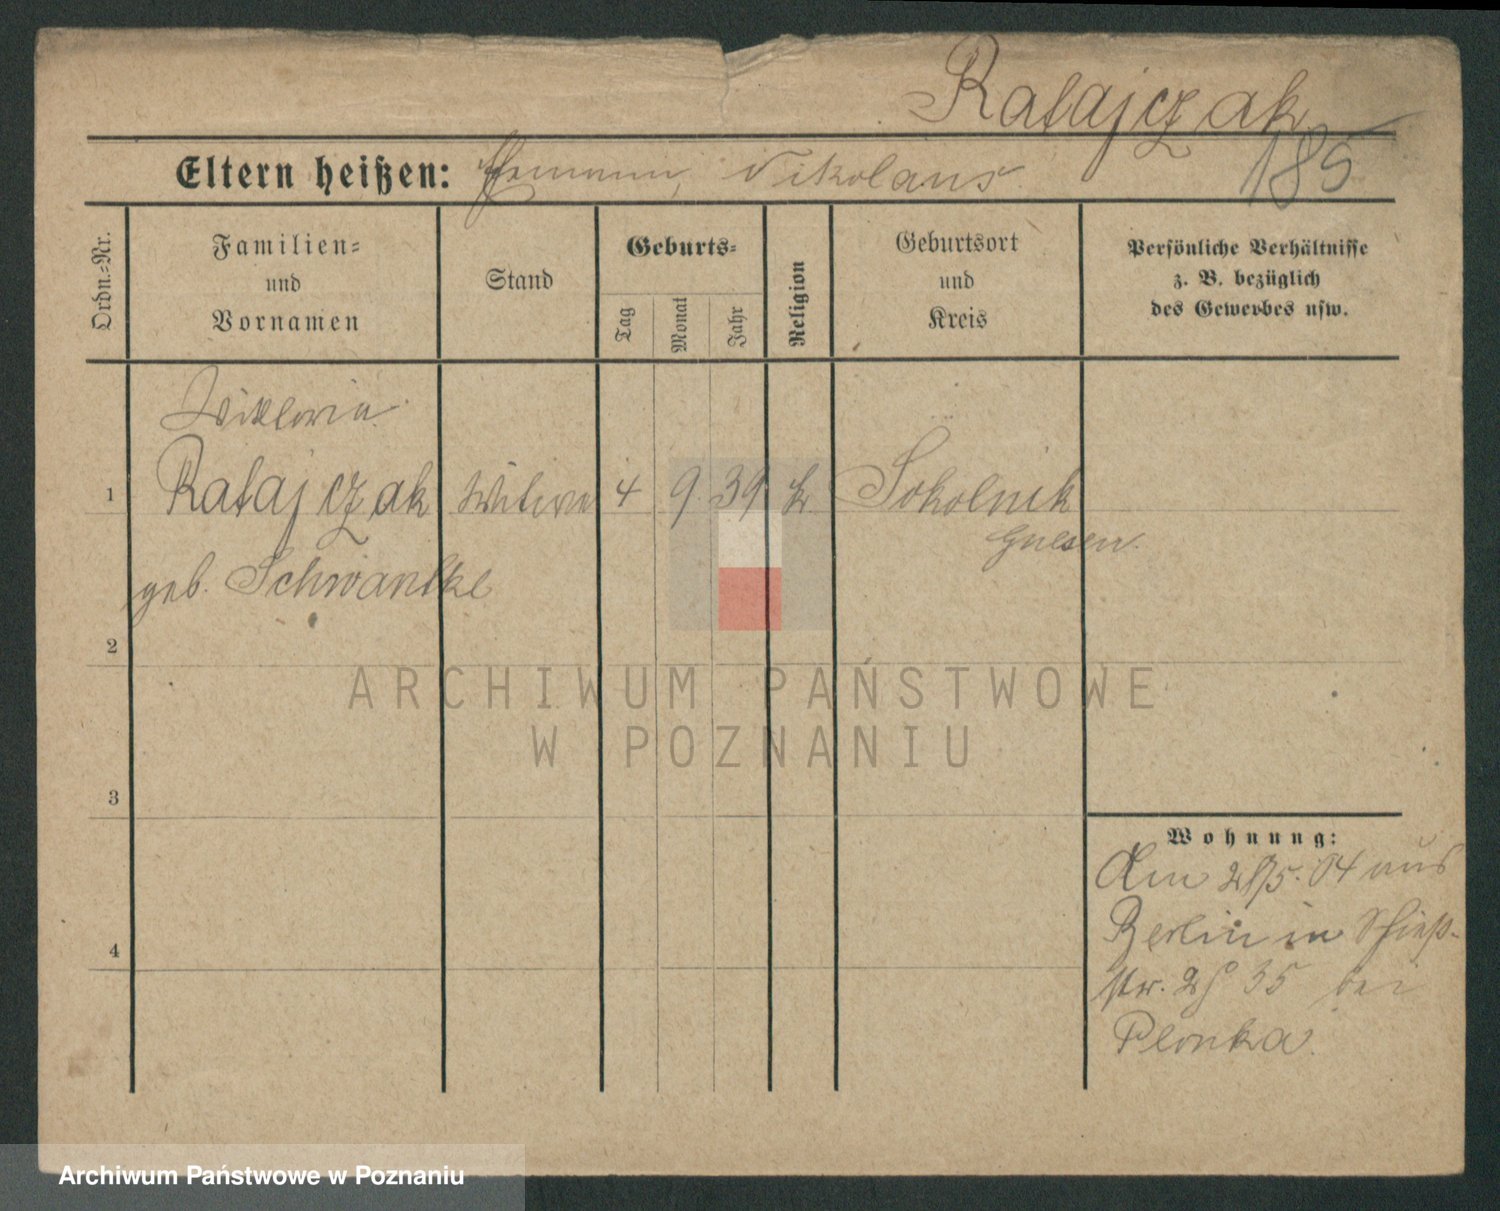 Ratajczak
185
Eltern heißen: Nikolaus
Ordn.=Nr.
Familien=
und
Vornamen
Stand
Geburts=
Tag
Monat
Jahr
Religion
Geburtsort
und
Kreis
Persönliche Verhältnisse
z. B. bezüglich
des Gewerbes usw.
Viktoria
1 Ratajczak Witwe 4 9 39 k Sokolnik
Gnesen.
geb. Schwantke
2
ARCHIWUM PAŃSTWOWE
W POZNANIU
3
Wohnung:
Am 04 aus
4
Berlin in Schieß-
str. 35 bei
Plonka.
Archiwum Państwowe w Poznaniu